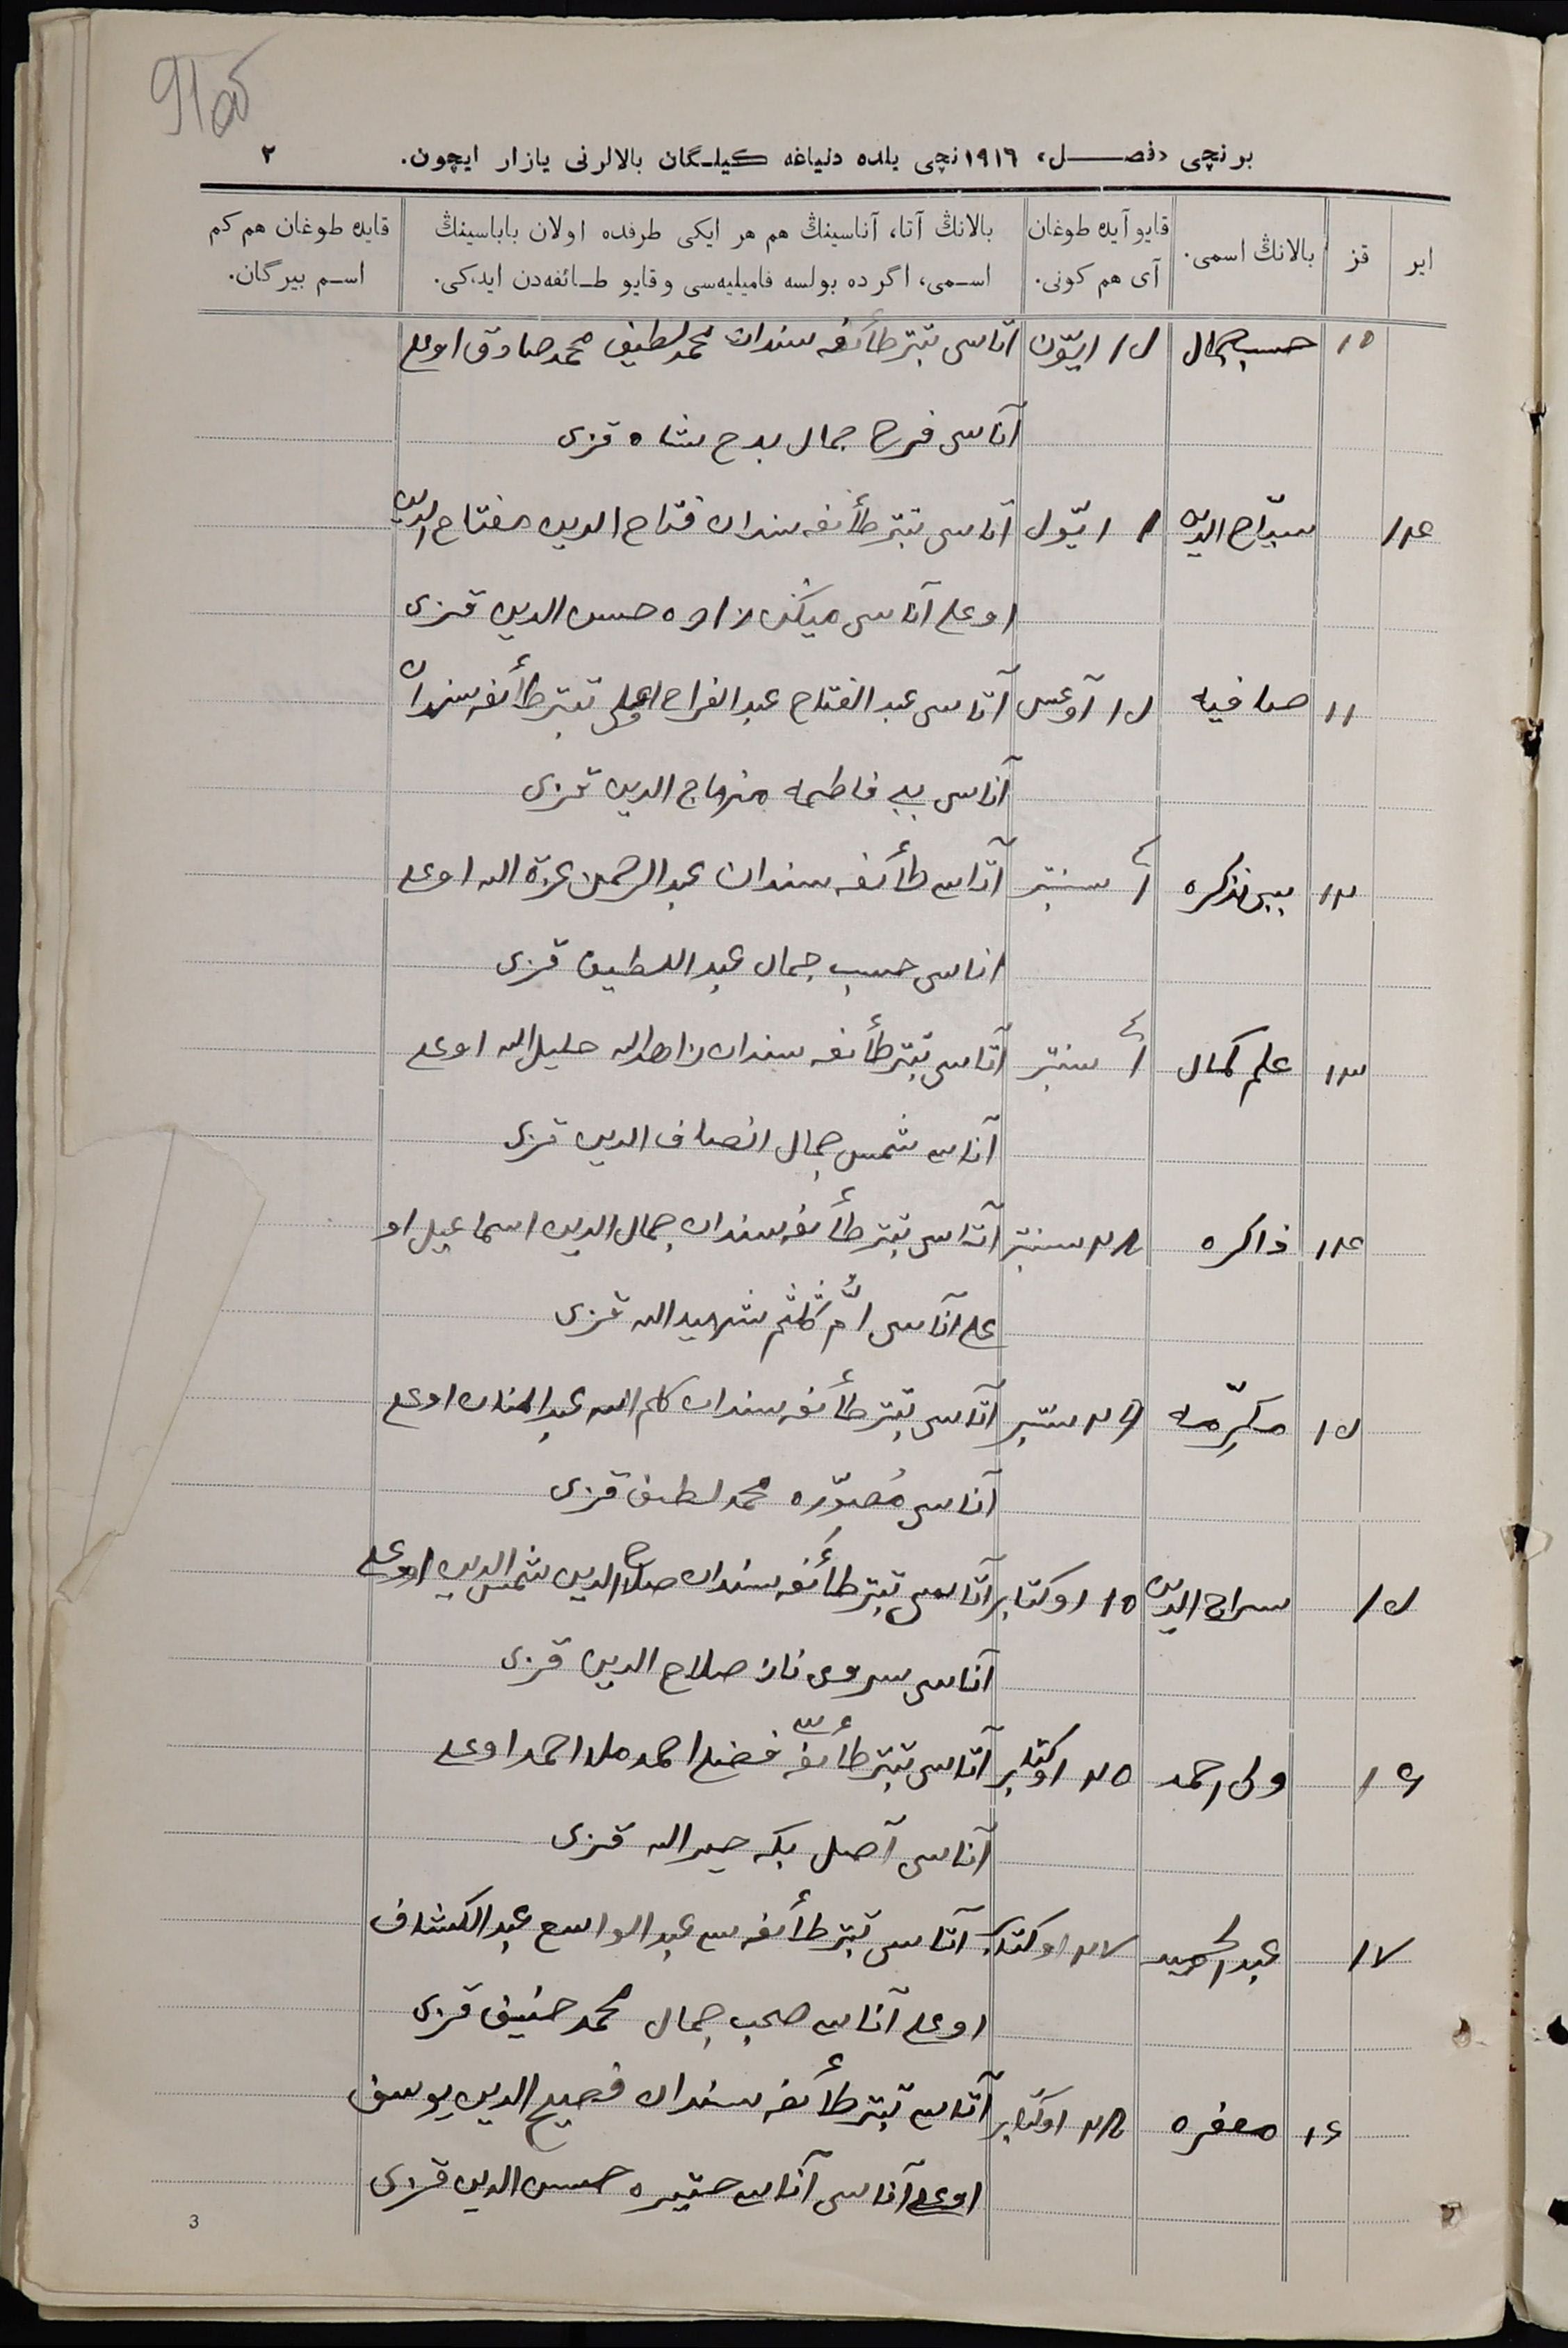 91об
برنچی «فصل» ١٩١٦نچی یلده دنیاغه کیلگان بالالرنی یازار ایچون. ٢
ایر قز بالانڭ اسمی. قایو آیده طوغان آی هم کونی. بالانڭ آتا، آناسینڭ هم هر ایکی طرفده اولان باباسینڭ اسمی، اگرده بولسه فامیلیه‌سی وقایو طائفه‌دن ایدکی. قایده طوغان هم کم اسم بیرگان.
١٥ حسب جمال ١ل اییون اتاسی تبتر طائفه سندان محمد لطیف محمد صادق اوغلی
آناسی فرح جمال بدح شاه قزی
١٤ سراج الدین ١ ایول آتاسی تبتر طائفه سندان فتاح الدین مفتاح الدین
اوغلی آناسی حسن الدین قزی
١١ صافیه ١ل آوغس آتاسی عبد الفتاح عبد الفراح اوغلی تبتر طائفه سندان
آناسی بی فاطمه منهاج الدین قزی
١٢ بیبی ذکره سنتبر آتاسی طائفه سندان عبد الرحمن عزة الله اوغلی
اناسی حسب جمال عبد اللطیف قزی
١٣ علم کمال سنتبر آتاسی تبتر طائفه سندان زاهد الله خلیل الله اوغلی
آناسی شمس جمال انصاف الدین قزی
١٤ ذاکره ٢٨ سنتبر آتاسی تبتر طائفه سندان جمال الدین اسماعیل او
غلی آناسی ام کلثم شهید الله قزی
١٥ مکرّمه ٢٩ سنتبر آتاسی تبتر طائفه سندان کلم الله عبد المنان اوغلی
آناسی مُصوّره محمد لطیف قزی
١٥ سراج الدین ١٥ اوکتابر آتاسی تبتر طائفه سندان صلاح الدین شمس الدین اوغلی
آناسی سروی ناز صلاح الدین قزی
١٦ ولی احمد ٢٥ اوکتابر آتاسی تبتر طائفه سی فضل احمد ملا احمد اوغلی
آناسی آصل بکه قزی
١٧ عبد الحمید ٢٧ اوکتابر آتاسی تبتر طائفه سی عبد الواسع عبد الکشاف
اوغلی آناسی صحب جمال محمد حنیف قزی
١٦ مغفره ٢٨ اوکتابر آتاسی تبتر طائفه سندان فصیح الدین یوسف
اوغلی آناسی آناسی حسن الدین قزی
3